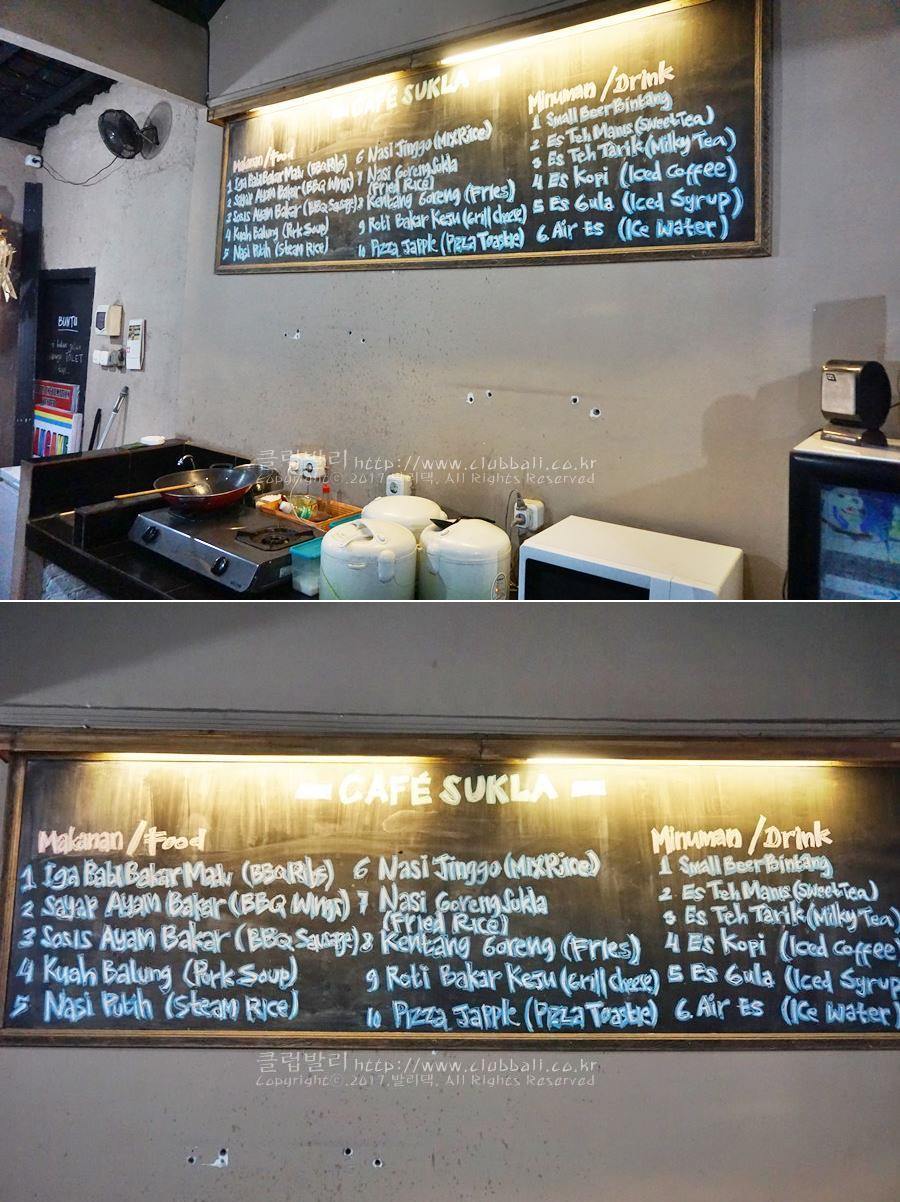 CAFÉ SUKLA
Makanan/Food
1 Iga Babi Bakar Madu (BBQ Ribs)
2 Sayap Ayam Bakar (BBQ Wings)
3 Sosis Ayam Bakar (BBQ Sausage)
4 Kuah Balung (Pork Soup)
5 Nasi Putih (Steam Rice)
6 Nasi Jinggo (Mix Rice)
7 Nasi Goreng Sukla
(Fried Rice)
8 Kentang Goreng (Fries)
9 Roti Bakar Keju (Grill Cheese)
10 Pizza Japple (Pizza Toastie)
Minuman/Drink
1 Small Beer Bintang
2 Es Teh Manis (Sweet Tea)
3 Es Teh Tarik (Milky Tea)
4 Es Kopi (Iced Coffee)
5 Es Gula (Iced Syrup)
6. Air Es (Ice Water)
BUNTU
TOILET
클럽발리 http://www.clubbali.co.kr
Copyrightⓒ.2017.발리택. All Rights Reserved
CAFÉ SUKLA
Makanan/Food
1 Iga Babi Bakar Madu (BBQ Ribs)
2 Sayap Ayam Bakar (BBQ Wings)
3 Sosis Ayam Bakar (BBQ Sausage)
4 Kuah Balung (Pork Soup)
5 Nasi Putih (Steam Rice)
6 Nasi Jinggo (Mix Rice)
7 Nasi Goreng Sukla
(Fried Rice)
8 Kentang Goreng (Fries)
9 Roti Bakar Keju (Grill Cheese)
10 Pizza Japple (Pizza Toastie)
Minuman/Drink
1 Small Beer Bintang
2 Es Teh Manis (Sweet Tea)
3 Es Teh Tarik (Milky Tea)
4 Es Kopi (Iced Coffee
5 Es Gula (Iced Syrup
6. Air Es (Ice Water)
클럽발리 http://www.clubbali.co.kr
Copyrightⓒ.2017.발리택. All Rights Reserved